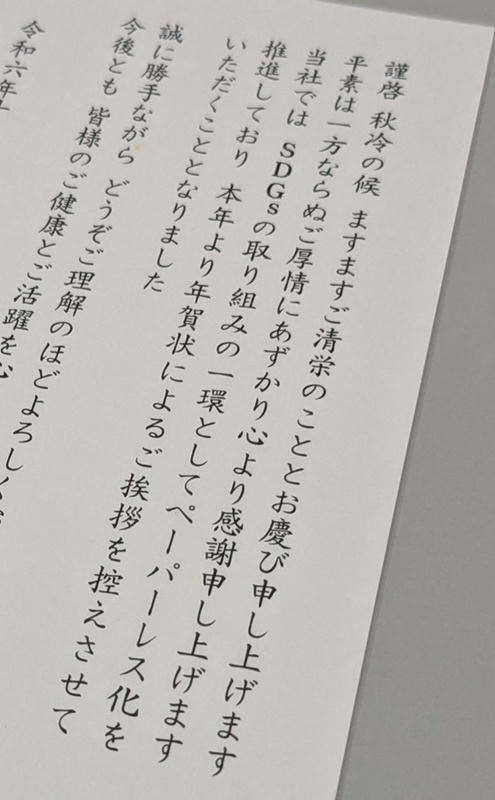 謹啓 秋冷の候 ますますご清栄のこととお慶び申し上げます
平素は一方ならぬご厚情にあずかり心より感謝申し上げます
当社では SDGsの取り組みの一環としてペーパーレス化を
推進しており 本年より年賀状によるご挨拶を控えさせて
いただくこととなりました
誠に勝手ながら どうぞご理解のほどよろしく
今後とも 皆様のご健康とご活躍を心
令和六年十